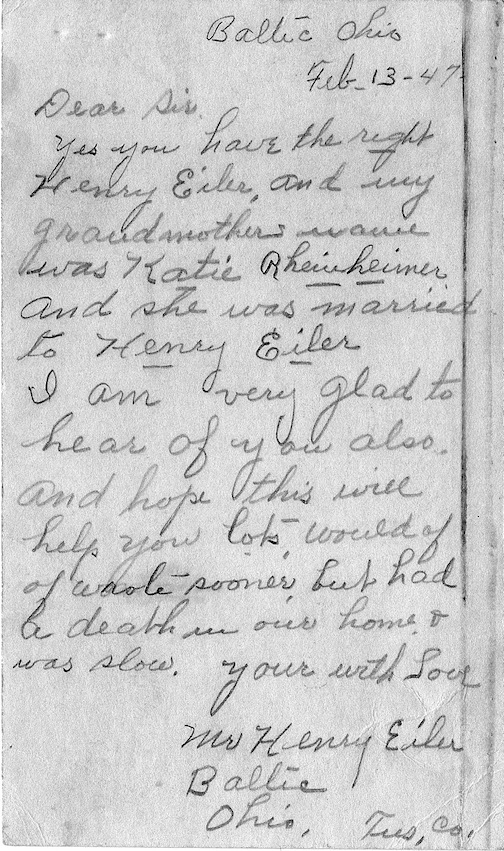 Baltic Ohio
Feb-13-47
Dear Sir.
Yes you have the right
Henry Eiler, and my
grandmothers name
was Katie Rheinheimer
and she was married
to Henry Eiler
I am very glad to
hear of you also.
and hope this will
help you lots, would of
of wrote sooner, but had
a death in our home &
was slow. your with Love
Mr Henry Eiler
Baltic
Ohio, Tus, Co.